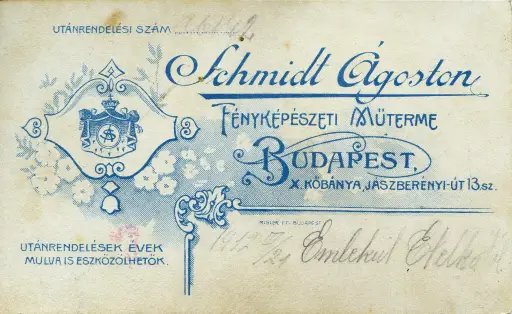 UTÁNRENDELÉSI SZÁM
Schmidt Ágoston
FÉNYKÉPÉSZETI MŰTERME
BUDAPEST,
X. KŐBÁNYA, JÁSZBERÉNYI-ÚT 13.SZ.
1912 Emlékül Etelka
UTÁNRENDELÉSEK ÉVEK
MULVA IS ESZKÖZÖLHETŐK.